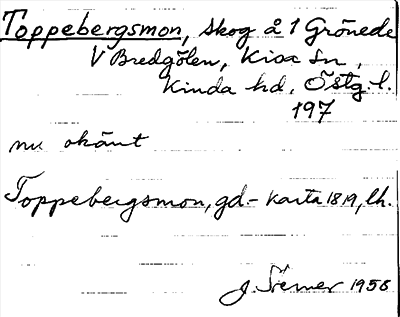 Toppebergsmon, skog å 1 Grönede
V Bredgölen, Kisa sn,
Kinda hd, Östg. l.
197
nu okänt
Toppebergsmon, gd- karta 1819, lh.
J. 1956